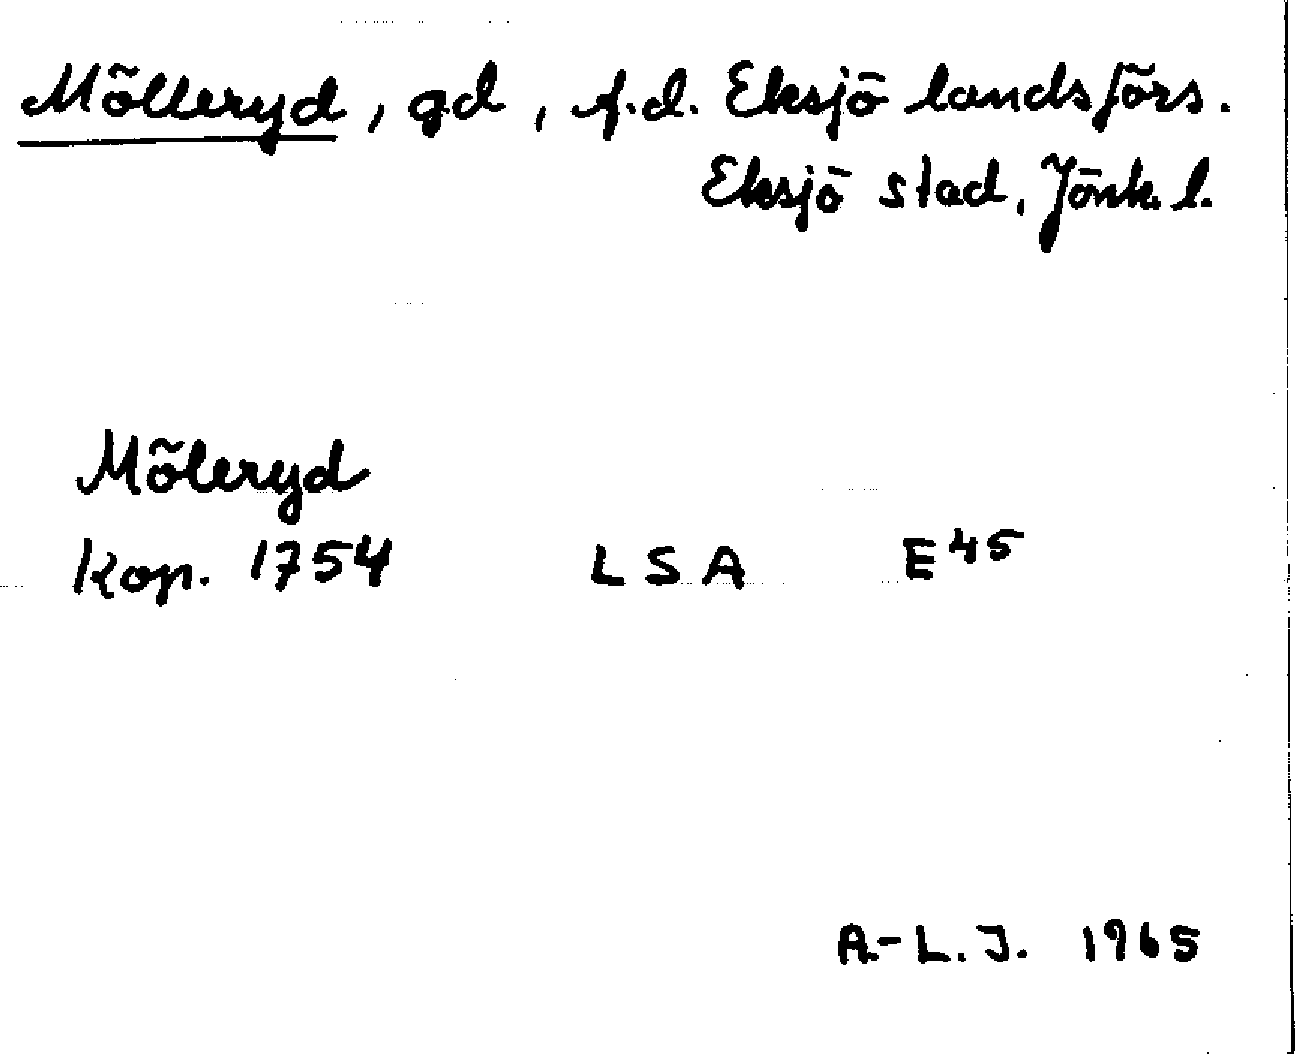 Mölleryd, gd, f.d. Eksjö landsförs.
Eksjö stad, Jönk. l.
Möleryd
Kop. 1754 LSA E 45
A.-L.J. 1965